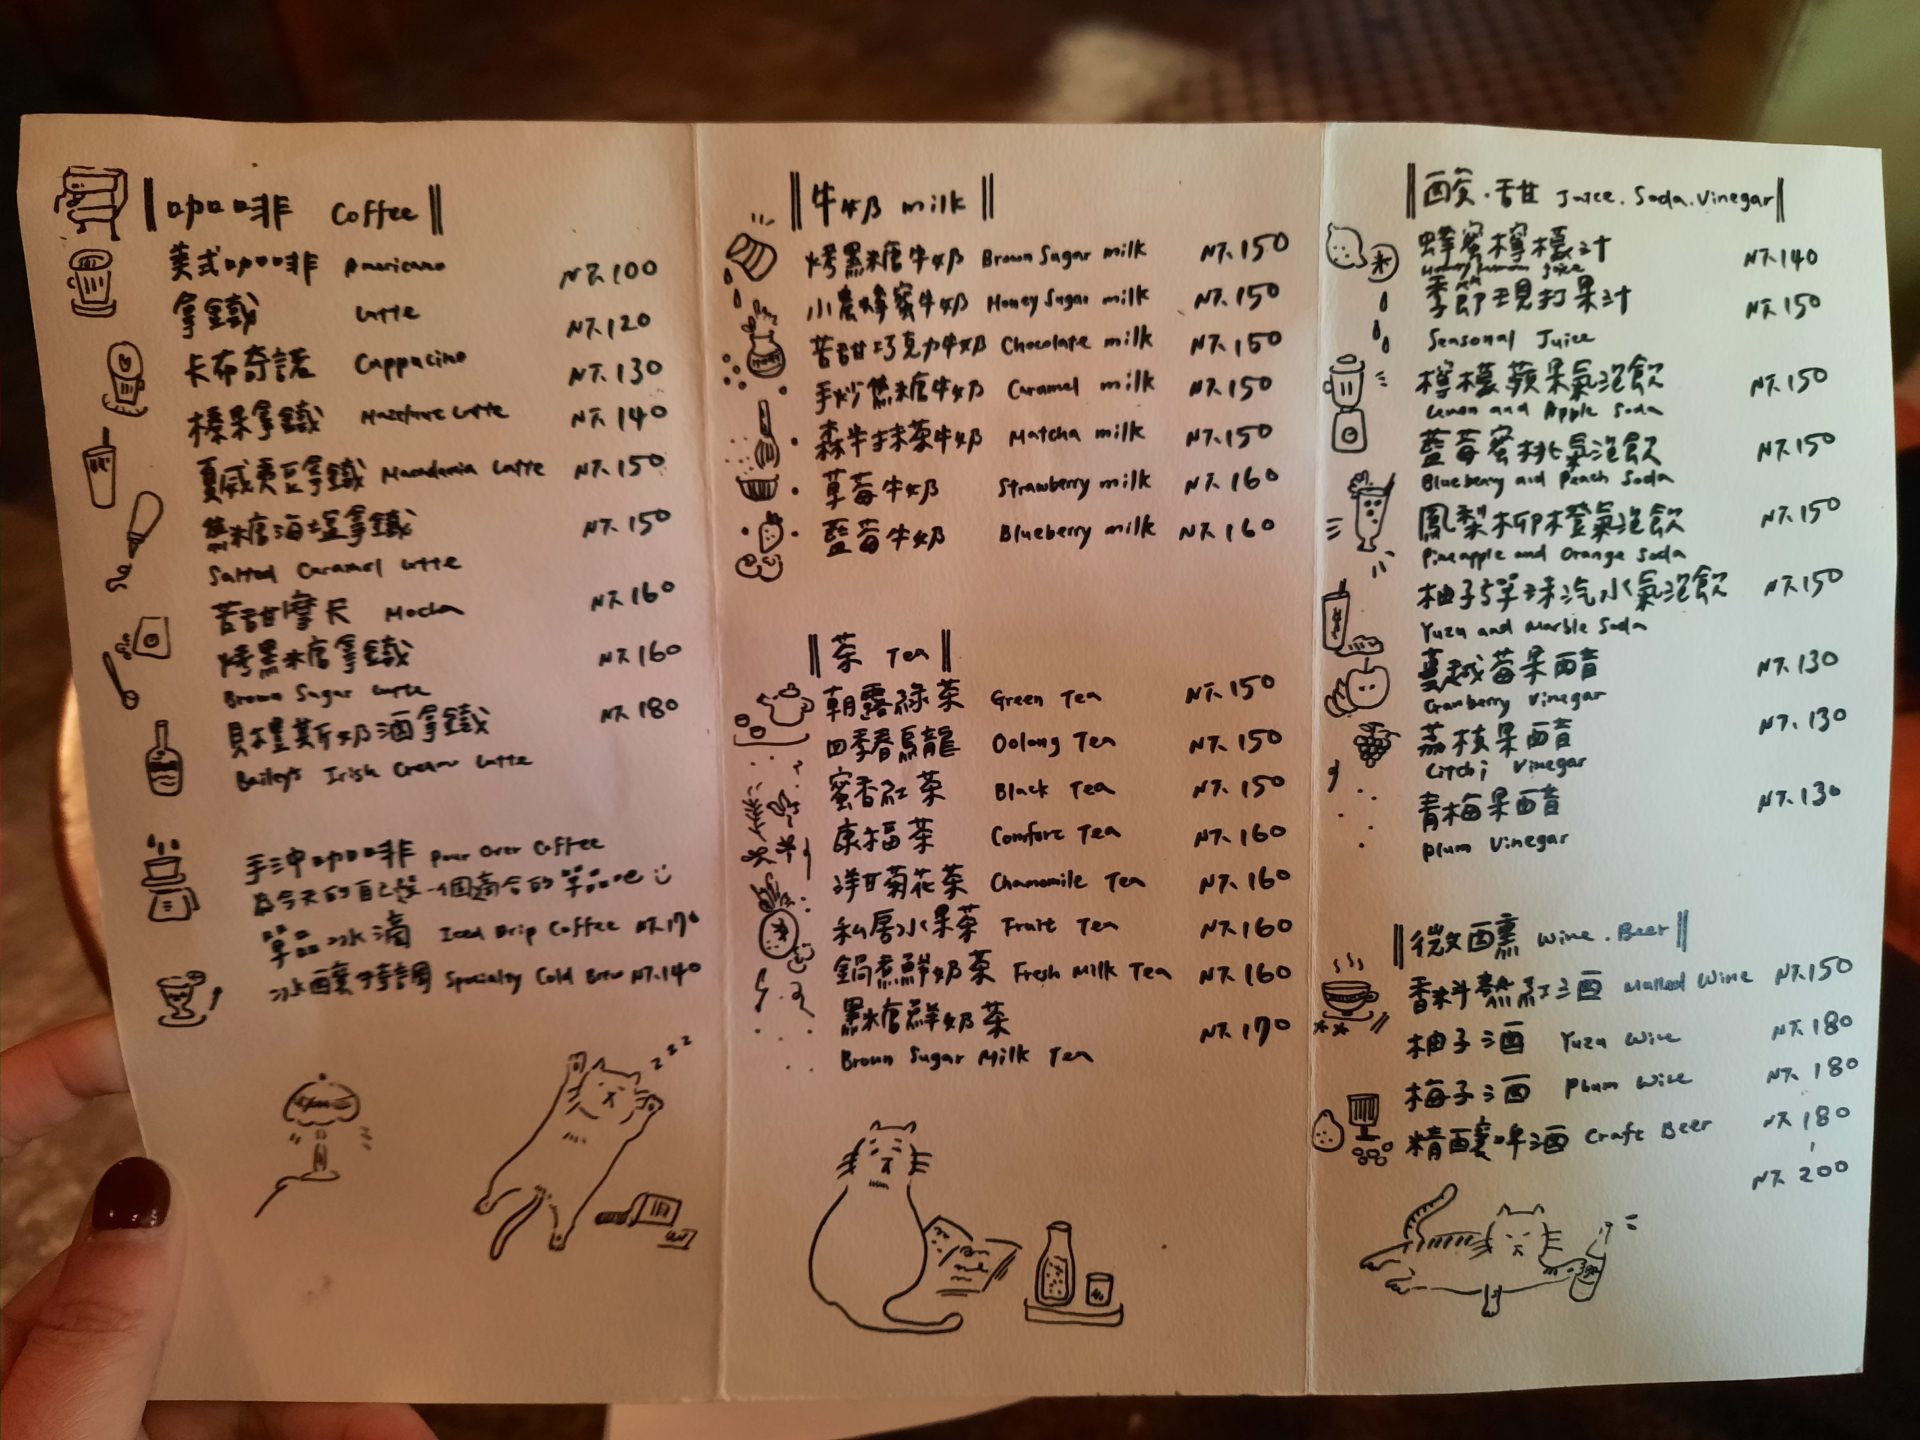 咖啡 Coffee
美式咖啡 Americano NT.100
拿鐵 Latte NT.120
卡布奇諾 Cappucino NT.130
榛果拿鐵 Hazelnut Latte NT.140
夏威夷豆拿鐵 Macadamia Latte NT.150
焦糖海塩拿鐵 NT.150
Salted Caramel Latte
苦甜摩卡 Mocha NT.160
烤黑糖拿鐵 NT.160
Brown Sugar Latte
貝禮斯奶酒拿鐵 NT.180
Bailey's Irish Cream Latte
手沖咖啡 Pour Over Coffee
為今天的自己選一個適合的單品吧
單品冰滴 Iced Drip Coffee NT.170
冰釀特調 Specialty Cold Brew NT.140
zzz
牛奶 milk
烤黑糖牛奶 Brown Sugar milk NT.150
小農蜂蜜牛奶 Honey Sugar milk NT.150
苦甜巧克力牛奶 Chocolate milk NT.150
手炒焦糖牛奶 Caramel milk NT.150
森半抹茶牛奶 Matcha milk NT.150
草莓牛奶 Strawberry milk NT.160
藍莓牛奶 Blueberry milk NT.160
茶 Tea
朝露綠茶 Green Tea NT.150
四季春烏龍 Oolong Tea NT.150
蜜香紅茶 Black Tea NT.150
康福茶 Comfort Tea NT.160
洋甘菊花茶 Chamomile Tea NT.160
私房水果茶 Fruit Tea NT.160
鍋煮鮮奶茶 Fresh Milk Tea NT.160
黑糖鮮奶茶 NT.170
Brown Sugar Milk Tea
酸.甜 Juice.Soda.Vinegar
蜂蜜檸檬汁 NT.140
Honey Lemon Juice
季節現打果汁 NT.150
Seasonal Juice
檸檬蘋果氣泡飲 NT.150
Lemon and Apple Soda
藍莓蜜桃氣泡飲 NT.150
Blueberry and Peach Soda
鳳梨柳橙氣泡飲 NT.150
Pineapple and Orange Soda
柚子彈珠汽水氣泡飲 NT.150
Yuzu and Marble Soda
蔓越莓果醋 NT.130
Cranberry Vinegar
荔枝果醋 NT.130
Litchi Vinegar
青梅果醋 NT.130
Plum Vinegar
微醺 Wine.Beer
香料熱紅酒 Mulled Wine NT.150
柚子酒 Yuzu Wine NT.180
梅子酒 Plum Wine NT.180
精釀啤酒 Craft Beer NT.180
NT.200